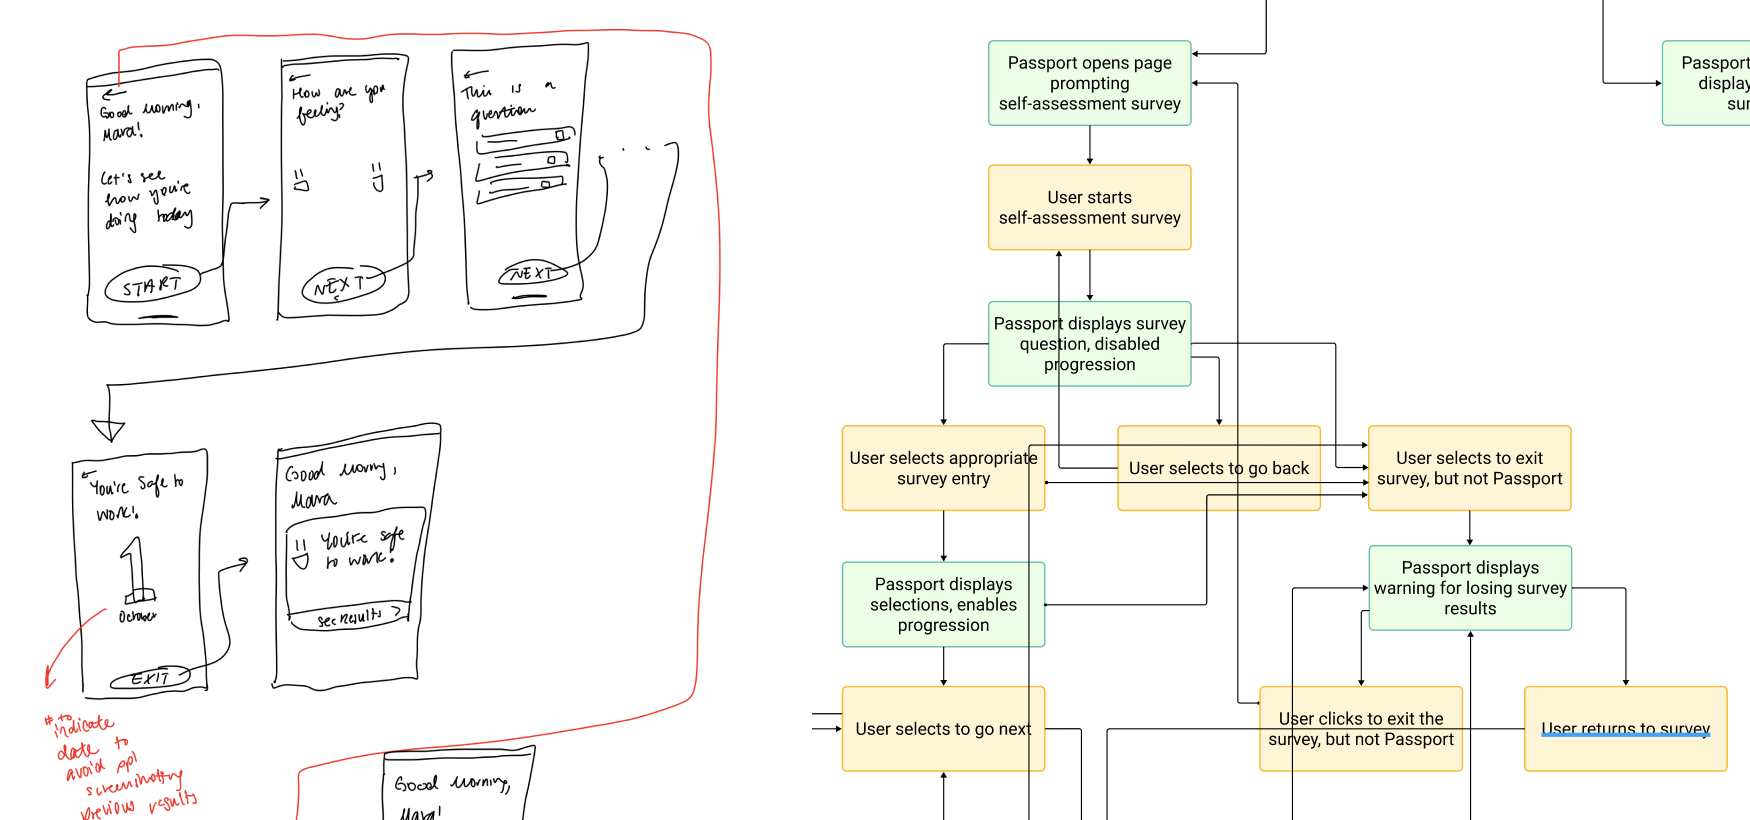 Good morning,
Mara!
Let's see
how you're
doing today
START
How are you
feeling?
NEXT
This is a
question
NEXT
You're safe to
work!
1
October
EXIT
Good morning,
Mara
You're safe
to work!
see results >
# to
indicate
date to
avoid ppl
screenshotting
previous results
Good morning,
Mara!
Passport opens page
prompting
self-assessment survey
User starts
self-assessment survey
Passport displays survey
question, disabled
progression
User selects appropriate
survey entry
User selects to go back
User selects to exit
survey, but not Passport
Passport displays
selections, enables
progression
Passport displays
warning for losing survey
results
User selects to go next
User clicks to exit the
survey, but not Passport
User returns to survey
Passport
display
sur